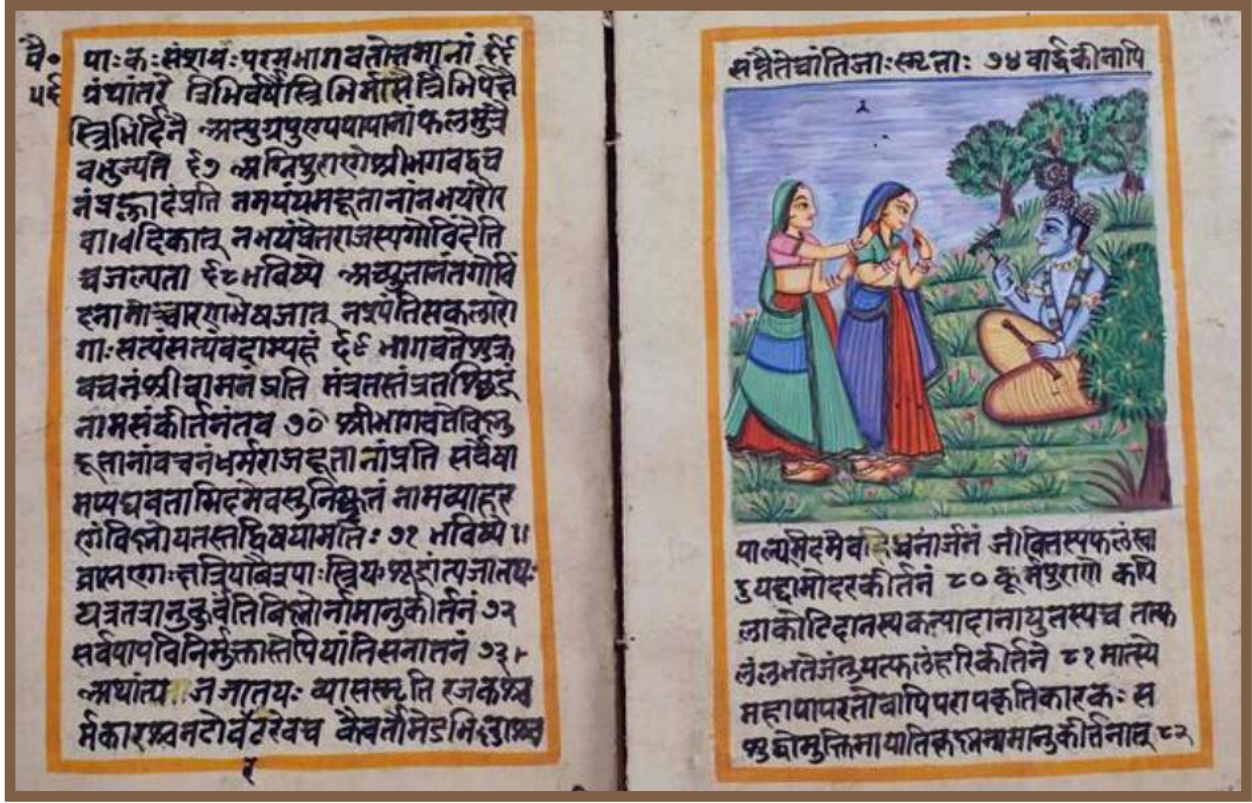 वै॰ पाः कः संशयः परमभागवतोत्तमानां ६६
प६ ग्रंथांतरे त्रिभिर्वर्षैस्त्रिभिर्मासैस्त्रिभिपक्षै
स्त्रिभिर्दिनैः अत्युग्रपुण्यपापानां फलमुत्रै
वभुज्यते ६७ अग्निपुराणे श्रीभगवद्वच
नं प्रह्लादंप्रति नमयंयमदूतानांनभयंरौर
वादिकात् नभयंप्रेतराजस्यगोविंदेति
चजल्पतां ६८ भविष्ये अच्युतानंतगोविं
दनामोच्चारणभेषजात् नश्यंतिसकलारो
गाः सत्यंसत्यंवदाम्यहं ६९ भागवतेशुक्र
वचनंश्रीवामनंप्रति मंत्रतस्तंत्रतश्छिद्रं
नामसंकीर्तनंतव ७० श्रीभागवतेविष्णु
दूतानांवचनंधर्मराजदूतानांप्रति सर्वेषा
मप्यघवतामिदमेवसुनिष्कृतं नामव्याहर
णंविष्णोयतस्तद्विषयामतिः ७१ भविष्ये ॥
ब्राह्मणाः क्षत्रियावैश्याः स्त्रियः शूद्रांत्यजातयः
यत्रतत्रानुकुर्वंतिविष्णोर्नामानुकीर्तनं ७२
सर्वपापविनिर्मुक्तास्तेपियांतिसनातनं ७३।
अथांत्यजजातयः व्यासस्मृति रजकश्च
र्मकारश्चनटोवरटएवच कैवर्तोमेदभिल्लाश्च
सप्तैतेचांतिजाः स्मृताः ७४ वार्द्धकीनापि
पाल्यमिदमेव धनार्जनं जीवितस्यफलंस्वा
दुयद्दामोदरकीर्तनं ८० कूर्मपुराणे कपि
लाकोटिदानस्यकन्यादानायुतस्यच तत्फ
लंलभतेजंतुयत्फलंहरिकीर्तने ८१ मात्स्ये
महापापरतोवापिपरापकृतिकारकः स
शुद्धोमुक्तिमायातिकृष्णनामानुकीर्तनात् ८२